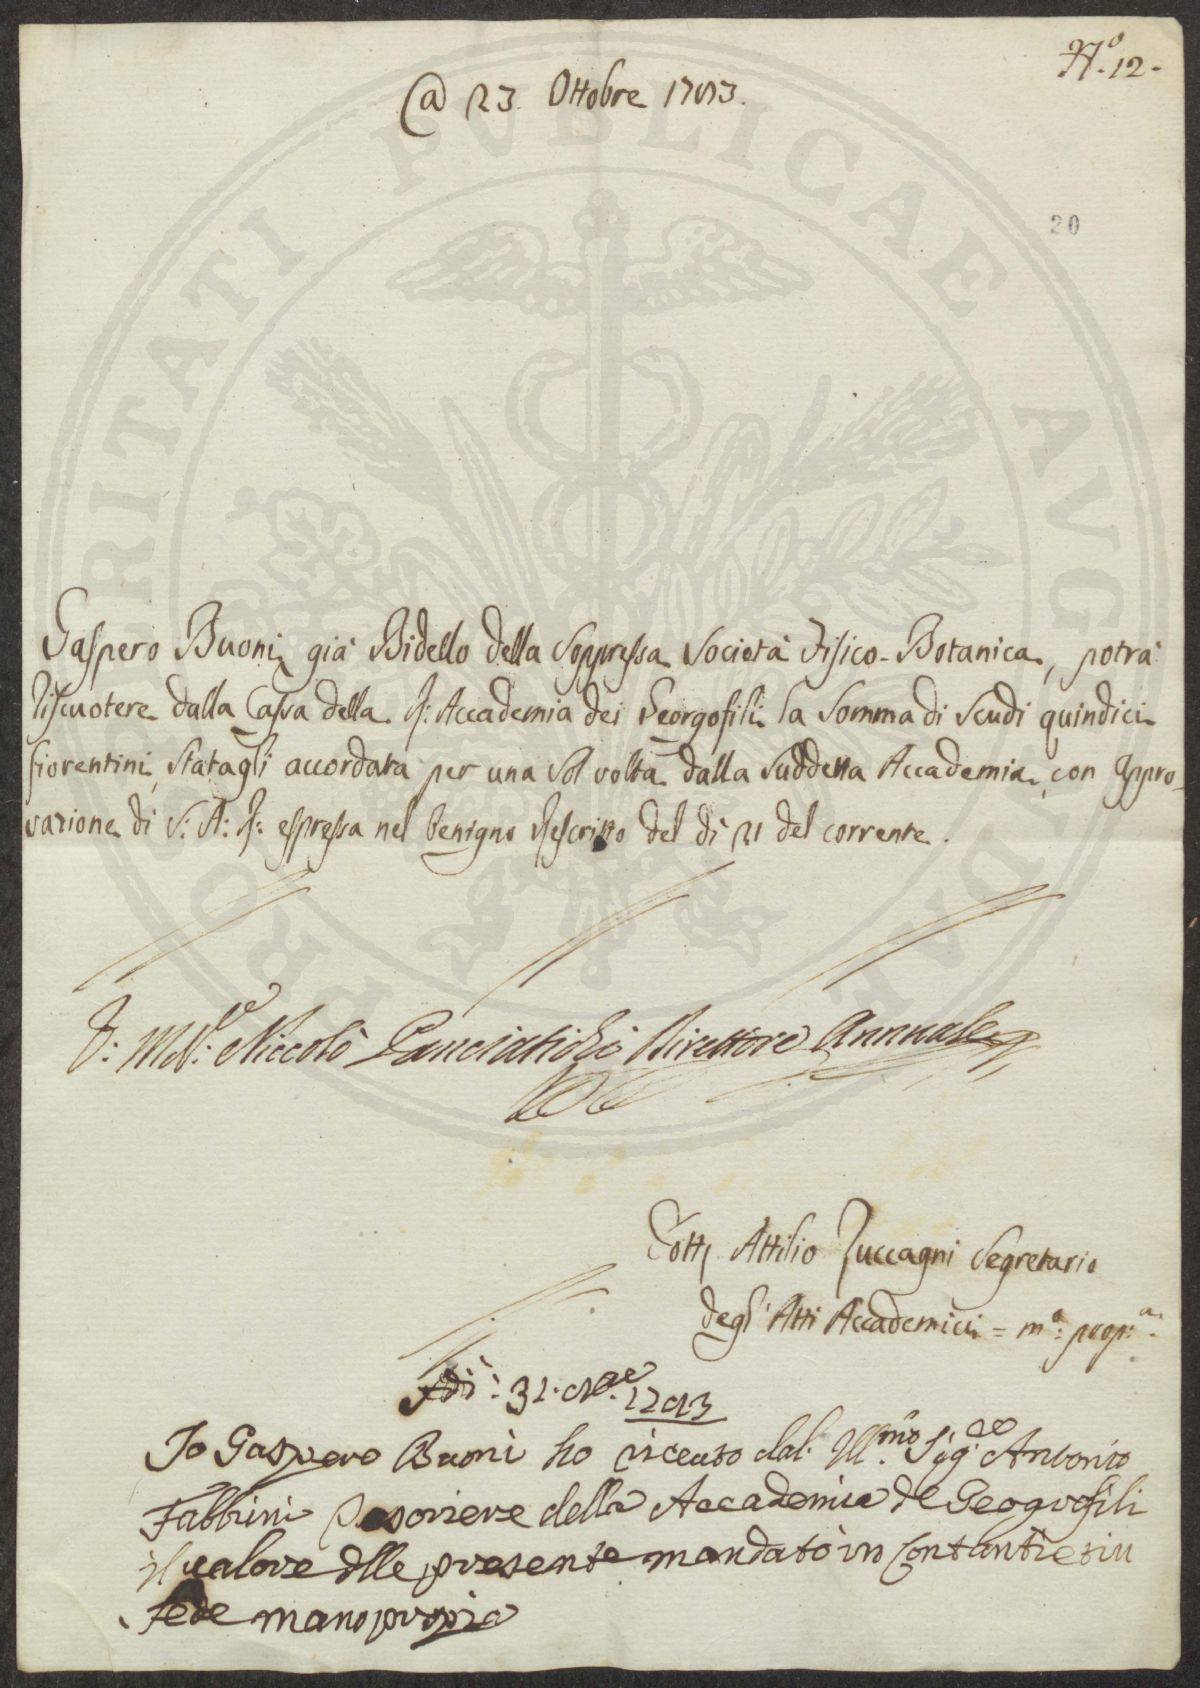 N.º 12 -
@ 23 Ottobre 1783.
20
PROSPERITATI PVBLICAE AVGENDAE
Gaspero Buoni già Bidello della soppressa Società Fisico-Botanica, potrà
riscuotere dalla Cassa della R: Accademia dei Georgofili la somma di scudi quindici
fiorentini statagli accordata per una sol volta dalla suddetta Accademia, con Appro-
vazione di S: A: R: espressa nel benigno Rescritto del dì 21 del corrente.
Niccolò Panciatichi Direttore Annuale
Dott. Attilio Zuccagni Segretario
degl'Atti Accademici = mº: prop:ª
Adi: 31. 8bre 1783
Io Gaspero Buoni ho riceuto dal. Ill.mo Sig.re Antonio
Fabbrini Tesoriere della Accademia de Georgofili
il valore dlle presente mandato in contanti e in
fede mano propria